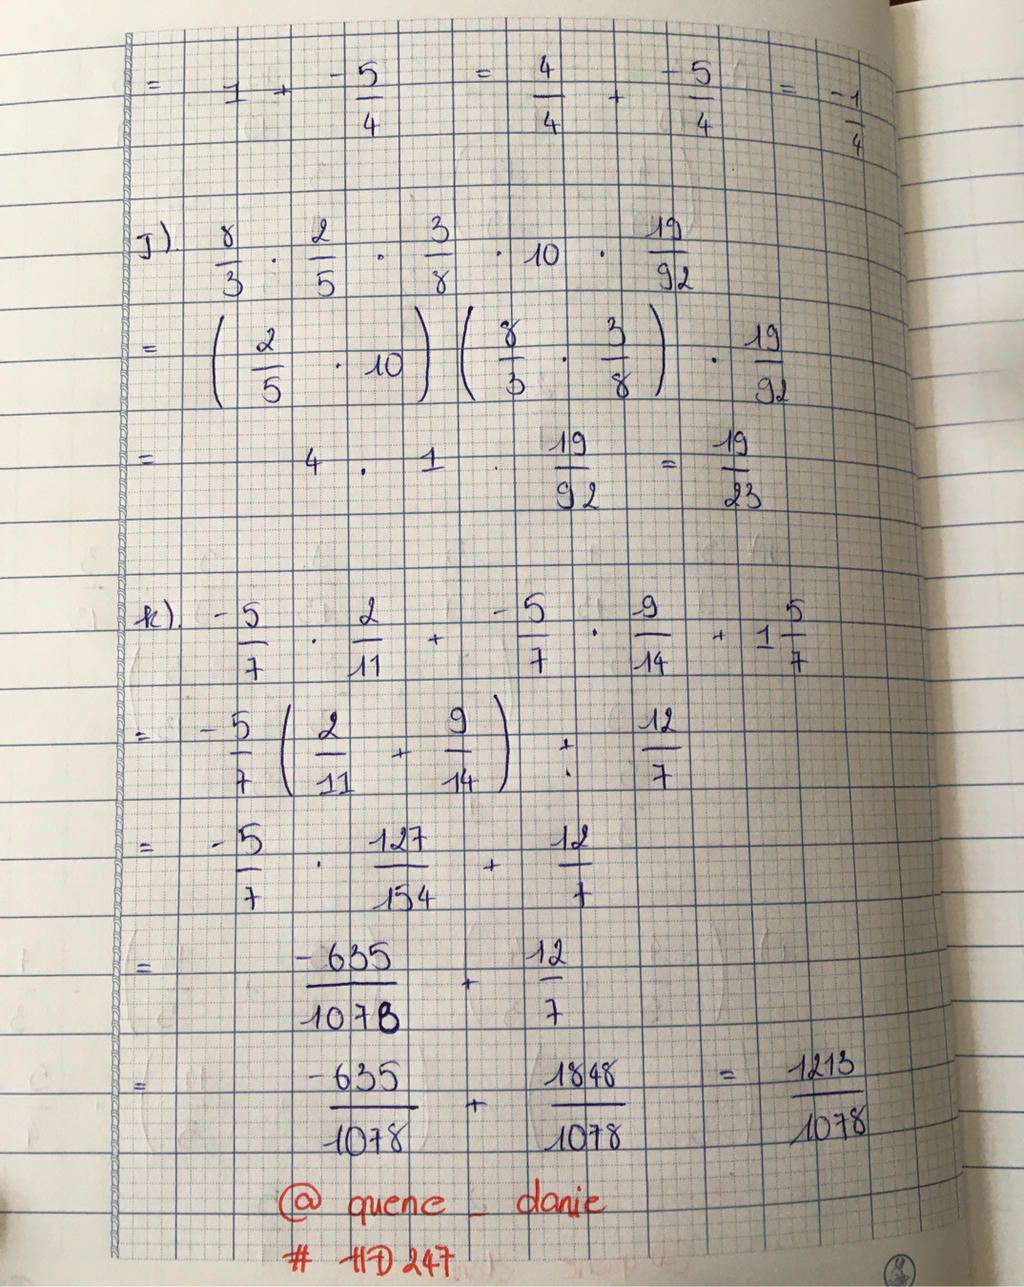 = 1 + -5/4 = 4/4 + -5/4 = -1/4
J). 8/3 . 2/5 . 3/8 . 10 . 19/92
= (2/5 . 10) (8/3 . 3/8) . 19/92
= 4 . 1 . 19/92 = 19/23
k). -5/7 . 2/11 + -5/7 . 9/14 + 1 5/7
= -5/7 (2/11 + 9/14) + 12/7
= -5/7 . 127/154 + 12/7
= -635/1078 + 12/7
= -635/1078 + 1848/1078 = 1213/1078
@ quene _ danie
# HD 247